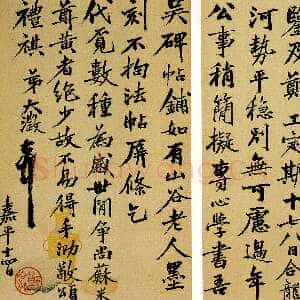 鑒及鄭工定期十七八日合龍
河勢平穩別無可慮過年
公事稍簡擬專心學書吾
吳碑帖鋪如有山谷老人墨
刻不拘法帖屏條乞
代覓數種為感世間爭尚蘇米
尊黃者絕少故不易得手泐敬頌
禮祺 弟大澂
嘉平